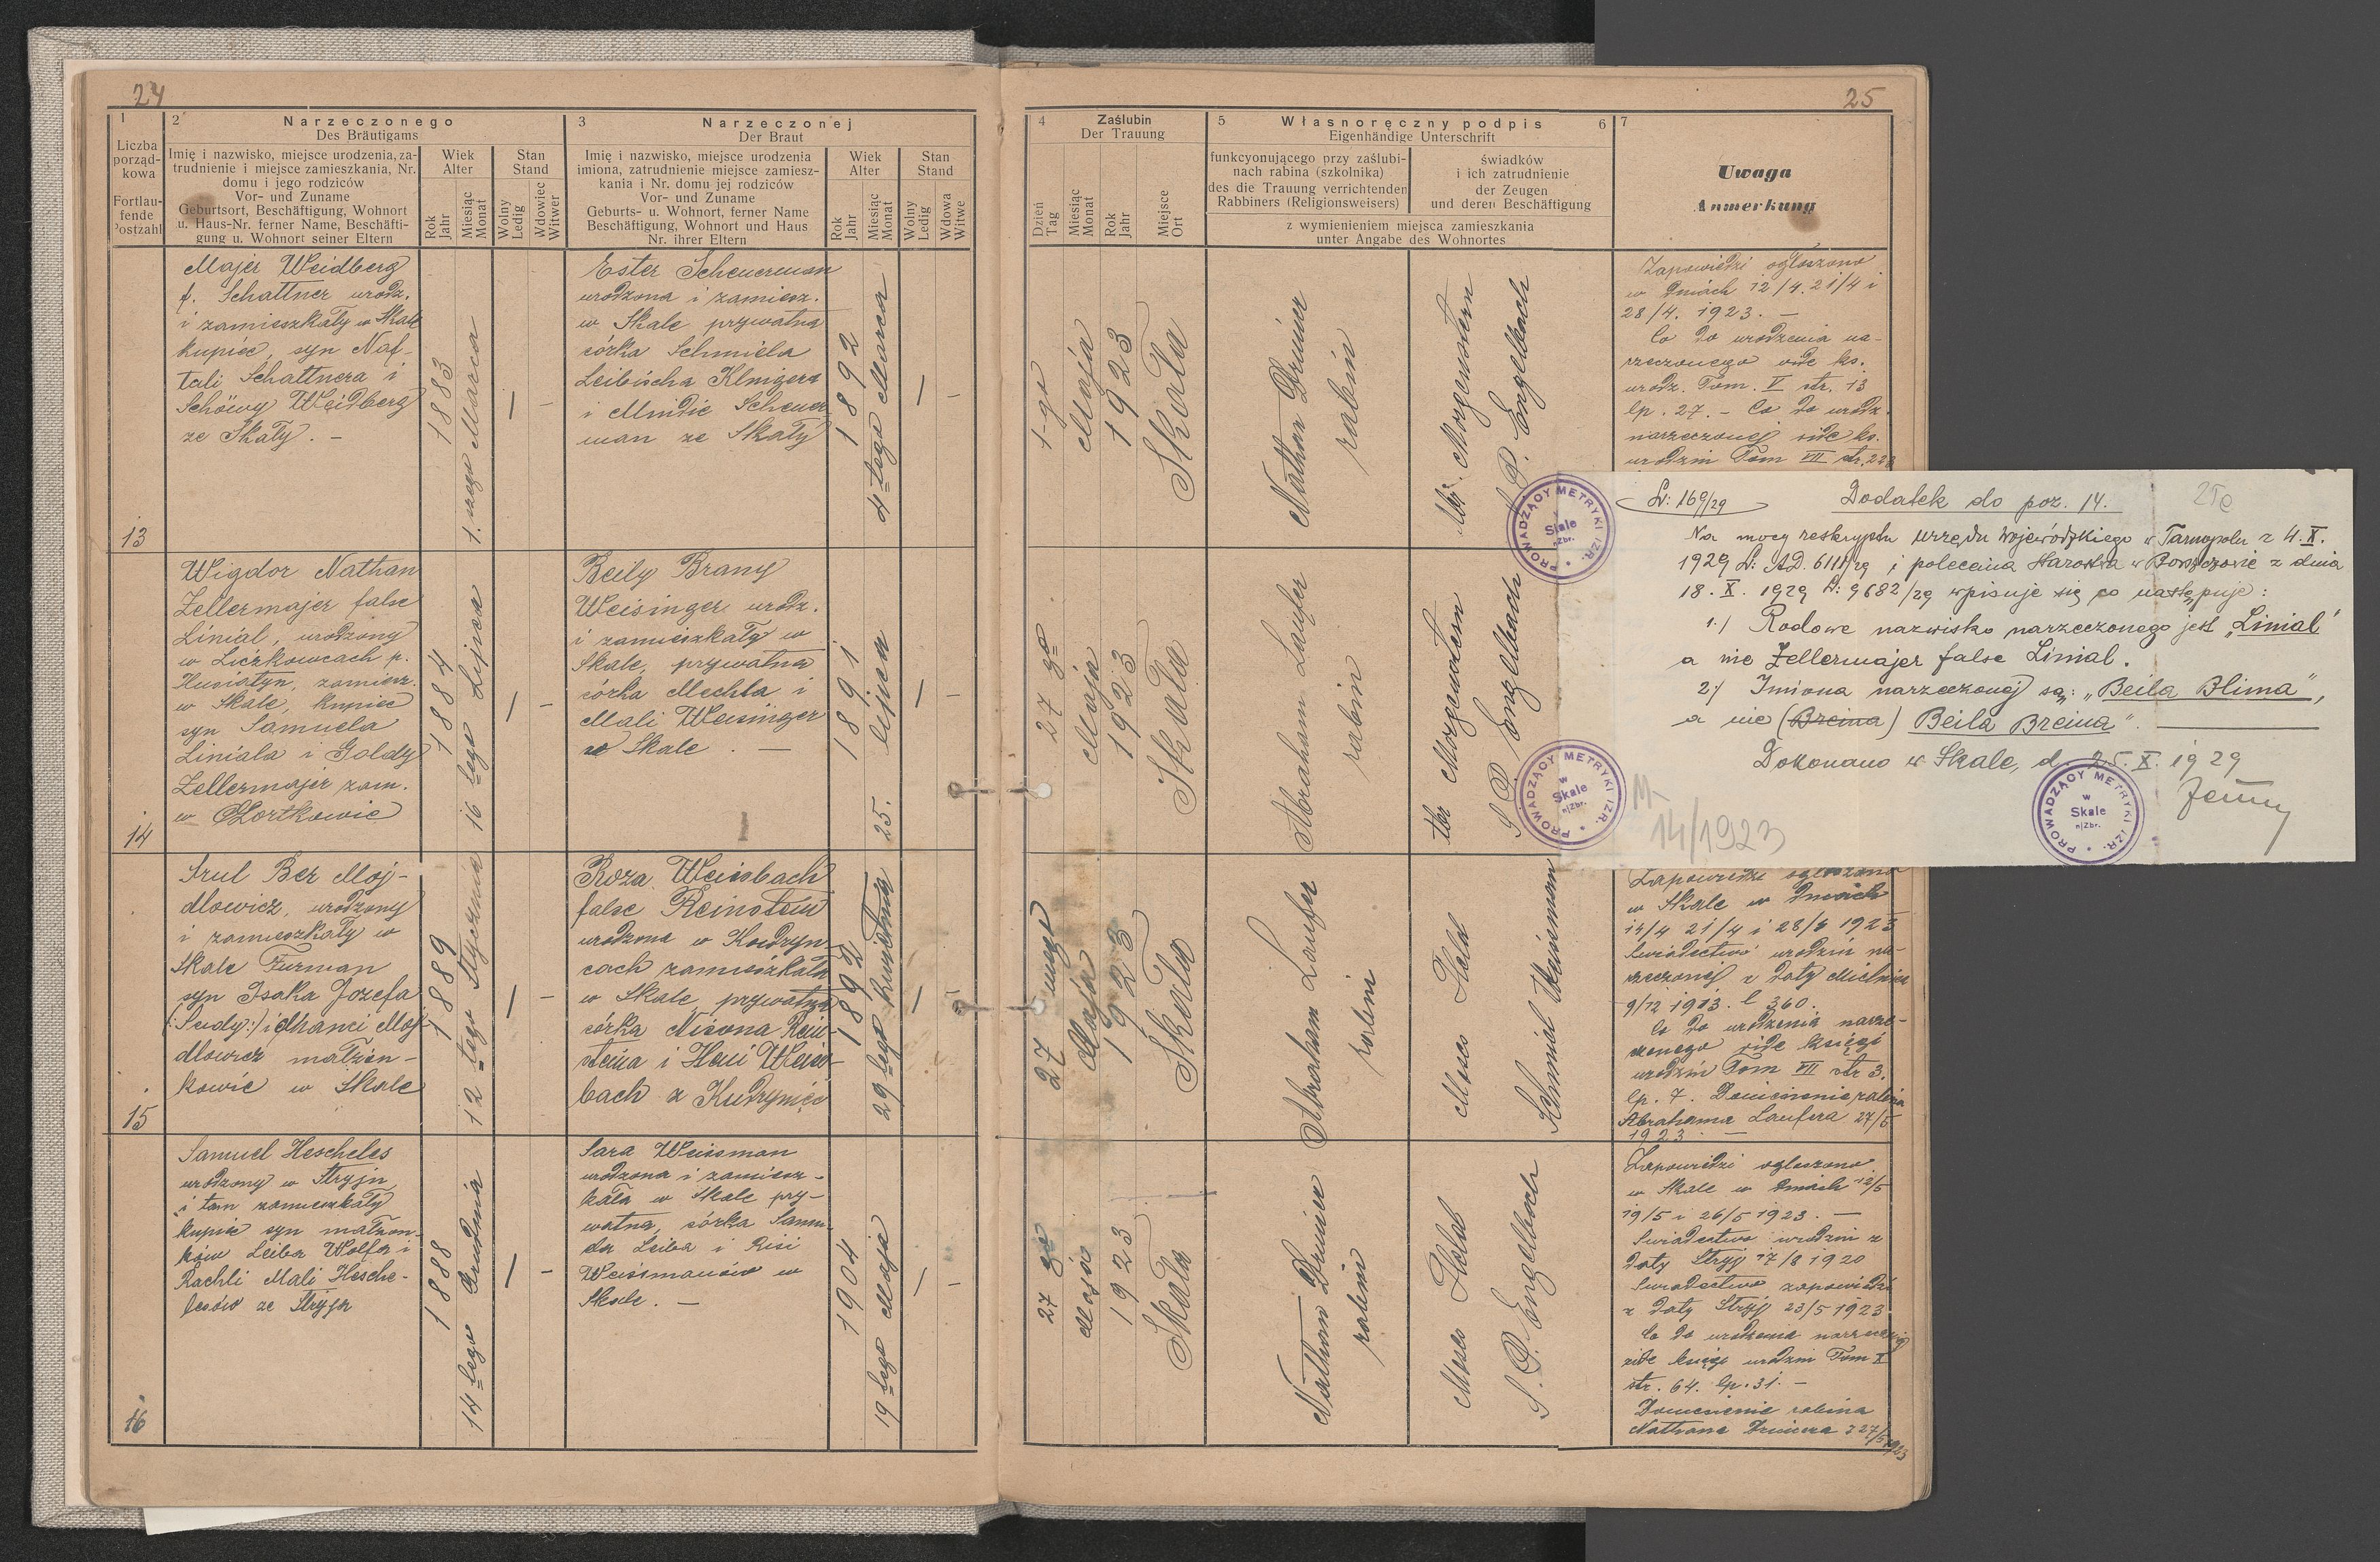 24
1
Liczba
porząd-
kowa
Fortlau-
fende
Postzahl
2
Narzeczonego
Des Bräutigams
Imię i nazwisko, miejsce urodzenia, za-
trudnienie i miejsce zamieszkania, Nr.
domu i jego rodziców
Vor- und Zuname
Geburtsort, Beschäftigung, Wohnort
u. Haus-Nr. ferner Name, Beschäfti-
gung u. Wohnort seiner Eltern
Wiek
Alter
Rok
Jahr
Miesiąc
Monat
Stan
Stand
Wolny
Ledig
Wdowiec
Witwer
3
Narzeczonej
Der Braut
Imię i nazwisko, miejsce urodzenia
imiona, zatrudnienie miejsce zamiesz-
kania i Nr. domu jej rodziców
Vor- und Zuname
Geburts- u. Wohnort, ferner Name
Beschäftigung, Wohnort und Haus
Nr. ihrer Eltern
Wiek
Alter
Rok
Jahr
Miesiąc
Monat
Stan
Stand
Wolny
Ledig
Wdowa
Witwe
25
4
Zaślubin
Der Trauung
Dzień
Tag
Miesiąc
Monat
Rok
Jahr
Miejsce
Ort
5
Własnoręczny podpis
6
Eigenhändige Unterschrift
funkcyonującego przy zaślubi-
nach rabina (szkolnika)
des die Trauung verrichtenden
Rabbiners (Religionsweisers)
świadków
i ich zatrudnienie
der Zeugen
und deren Beschäftigung
z wymienieniem miejsca zamieszkania
unter Angabe des Wohnortes
7
Uwaga
Anmerkung
13
Majer Weidberg
f. Schattner urodz.
i zamieszkały w Skale
kupiec, syn Naf-
tali Schattnera i
Weidberg
ze Skały. -
1883
1. szego Marca
Ester Scheuerman
urodzona i zamiesz.
w Skale prywatna
córka Schmiela
Leibischa
i Scheuer
man ze Skały
1892
4 tego Marca
1-go
Maja
1923
Skała
Nathan Druner
rabin
Morgenstern
S. P. Engelbach
Zapowiedzi ogłoszono
w dniach 12/4. 21/4 i
28/4. 1923. -
Co do urodzenia na-
rzeczonego vide ks.
urodz. Tom. V str. 13
lp. 27. - Co do urodz.
narzeczonej vide ks.
urodzin Tom VII str.
14
Wigdor Nathan
Zellermajer false
Linial, urodzony
w Liczkowcach p.
Husiatyn, zamiesz.
w Skale, kupiec
syn Samuela
Liniala i Goldy
Zellermajer zam.
w Czortkowie
1884
16 tego Lipca
Beily Brany
Weisinger urodz.
i zamieszkały w
Skale, prywatna
córka Mechla i
Mali Weisinger
w Skale. -
1891
25. lipca
27 go
Maja
1923
Skała
Abraham Laufer
rabin
Morgenstern
S. P. Engelbach
L: 169/29
Dodatek do poz. 14.
Na mocy reskryptu Urzędu Wojewódzkiego w Tarnopolu z 4. X.
1929 L: AD. 6111/29 i polecenia Starostwa w Borszczowie z dnia
18. X. 1929 L: 9682/29 wpisuje się co następuje:
1.) Rodowe nazwisko narzeczonego jest „Linial"
a nie Zellermajer false Linial.
2.) Imiona narzeczonej są: „Beila Blima",
a nie (Breina) Beila Breina"
Dokonano w Skale, d. 25. X. 1929
14/1923
PROWADZĄCY METRYKI IZR.
w
Skale
n/Zbr.
PROWADZĄCY METRYKI IZR.
w
Skale
n/Zbr.
PROWADZĄCY METRYKI IZR.
w
Skale
n/Zbr.
15
Srul Ber Moj-
dlowicz, urodzony
i zamieszkały w
Skale Furman
syn Isaka Jozefa
(:Sudy:) i Chanci Moj-
dlowicz małżon-
kowie w Skale
1889
12 tego Stycznia
Roza Weissbach
false Reinstein
urodzona w Kudryn-
cach zamieszkała
w Skale, prywatna
córka Nisona Rein
steina i Heni Weiss-
bach z Kudryniec
1892
29 tego kwietnia
27 mego
Maja
1923
Skała
Abraham Laufer
rabin
Moses Held
Schmiel Weinsman
Zapowiedzi ogłoszono
w Skale w dniach
14/4 21/4 i 28/4 1923
Świadectwo urodzin na-
rzeczonej z daty Mielnica
9/12 1913. l 360.
Co do urodzenia narze-
czonego vide księgi
urodzin Tom VII str 3.
lp. 7. Doniesienie rabina
Abrahama Laufera 27/5
1923 -
16
Samuel Hescheles
urodzony w Stryju
i tam zamieszkały
kupiec syn małżon-
ków Leiba Wolfa i
Rachli Mali Hesche-
lesów ze Stryja
1888
14 tego Grudnia
Sara Weissman
urodzona i zamiesz-
kała w Skale pry-
watna, córka Samu
ela Leiba i Risi
Weissmanów w
Skale. -
1904
19 tego Maja
27 go
Maja
1923
Skała
Nathan Druner
rabin
Moses Held
S. P. Engelbach
Zapowiedzi ogłoszono
w Skale w dniach 12/5
19/5 i 26/5 1923. -
Świadectwo urodzin z
daty Stryj 17/8 1920
Świadectwo zapowiedzi
z daty Stryj 23/5 1923
Co do urodzenia narzeczonej
vide księgi urodzin Tom X
str. 64. lp. 31. -
Doniesienie rabina
Nathana Drunera z 27/5 1923